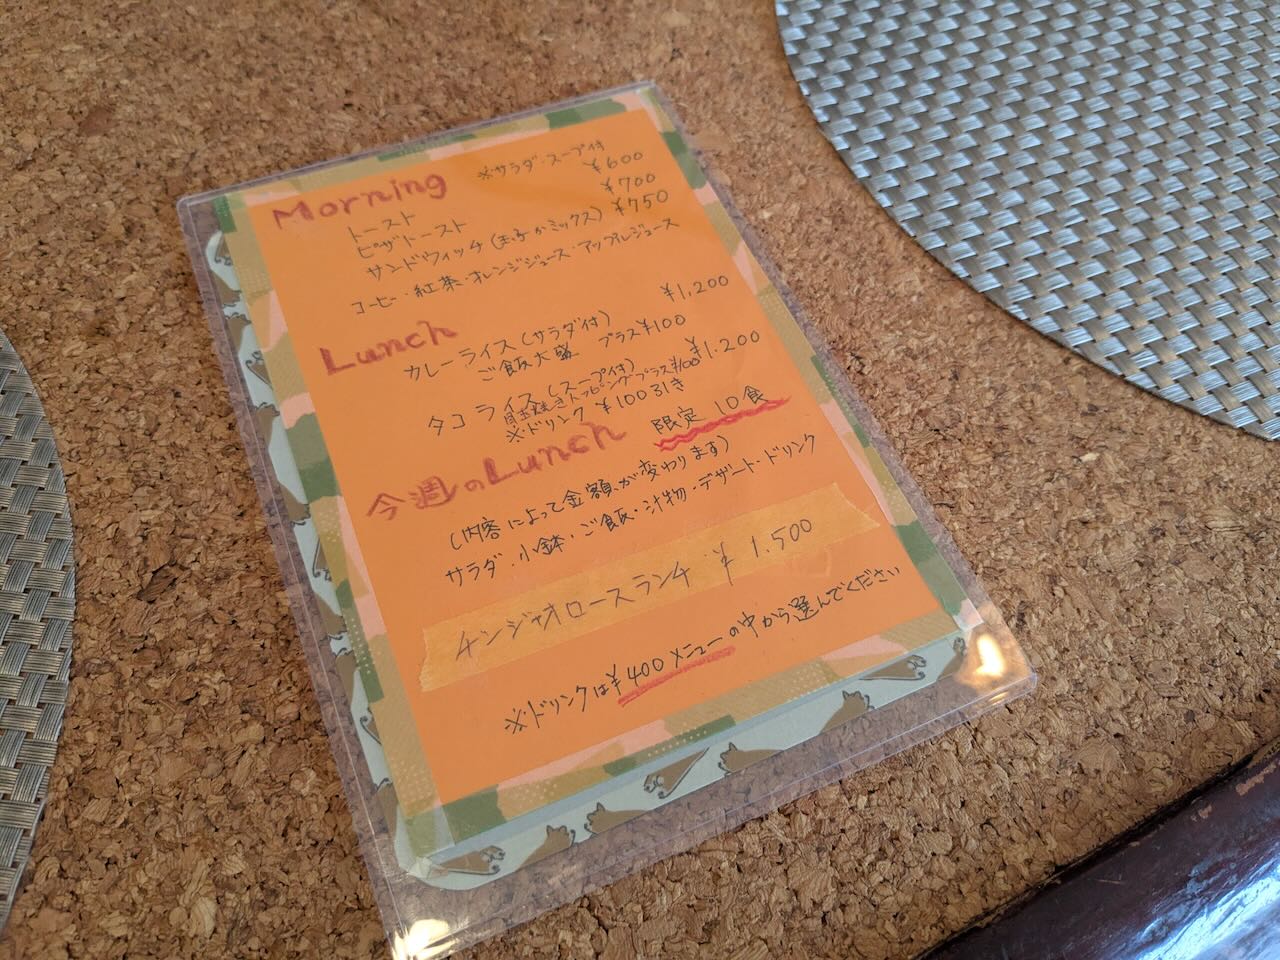 Morning ※サラダ・スープ付
トースト ¥600
ピザトースト ¥700
サンドウィッチ(玉子かミックス) ¥750
コーヒー・紅茶・オレンジジュース・アップルジュース
Lunch
カレーライス(サラダ付) ¥1,200
ご飯大盛 プラス¥100
タコライス(スープ付) ¥1.200
目玉焼きトッピングプラス¥100
※ドリンク ¥100引き
今週のLunch 限定 10食
(内容によって金額が変わります)
サラダ・小鉢・ご飯・汁物・デザート・ドリンク
チンジャオロースランチ ¥1.500
※ドリンクは¥400メニューの中から選んでください